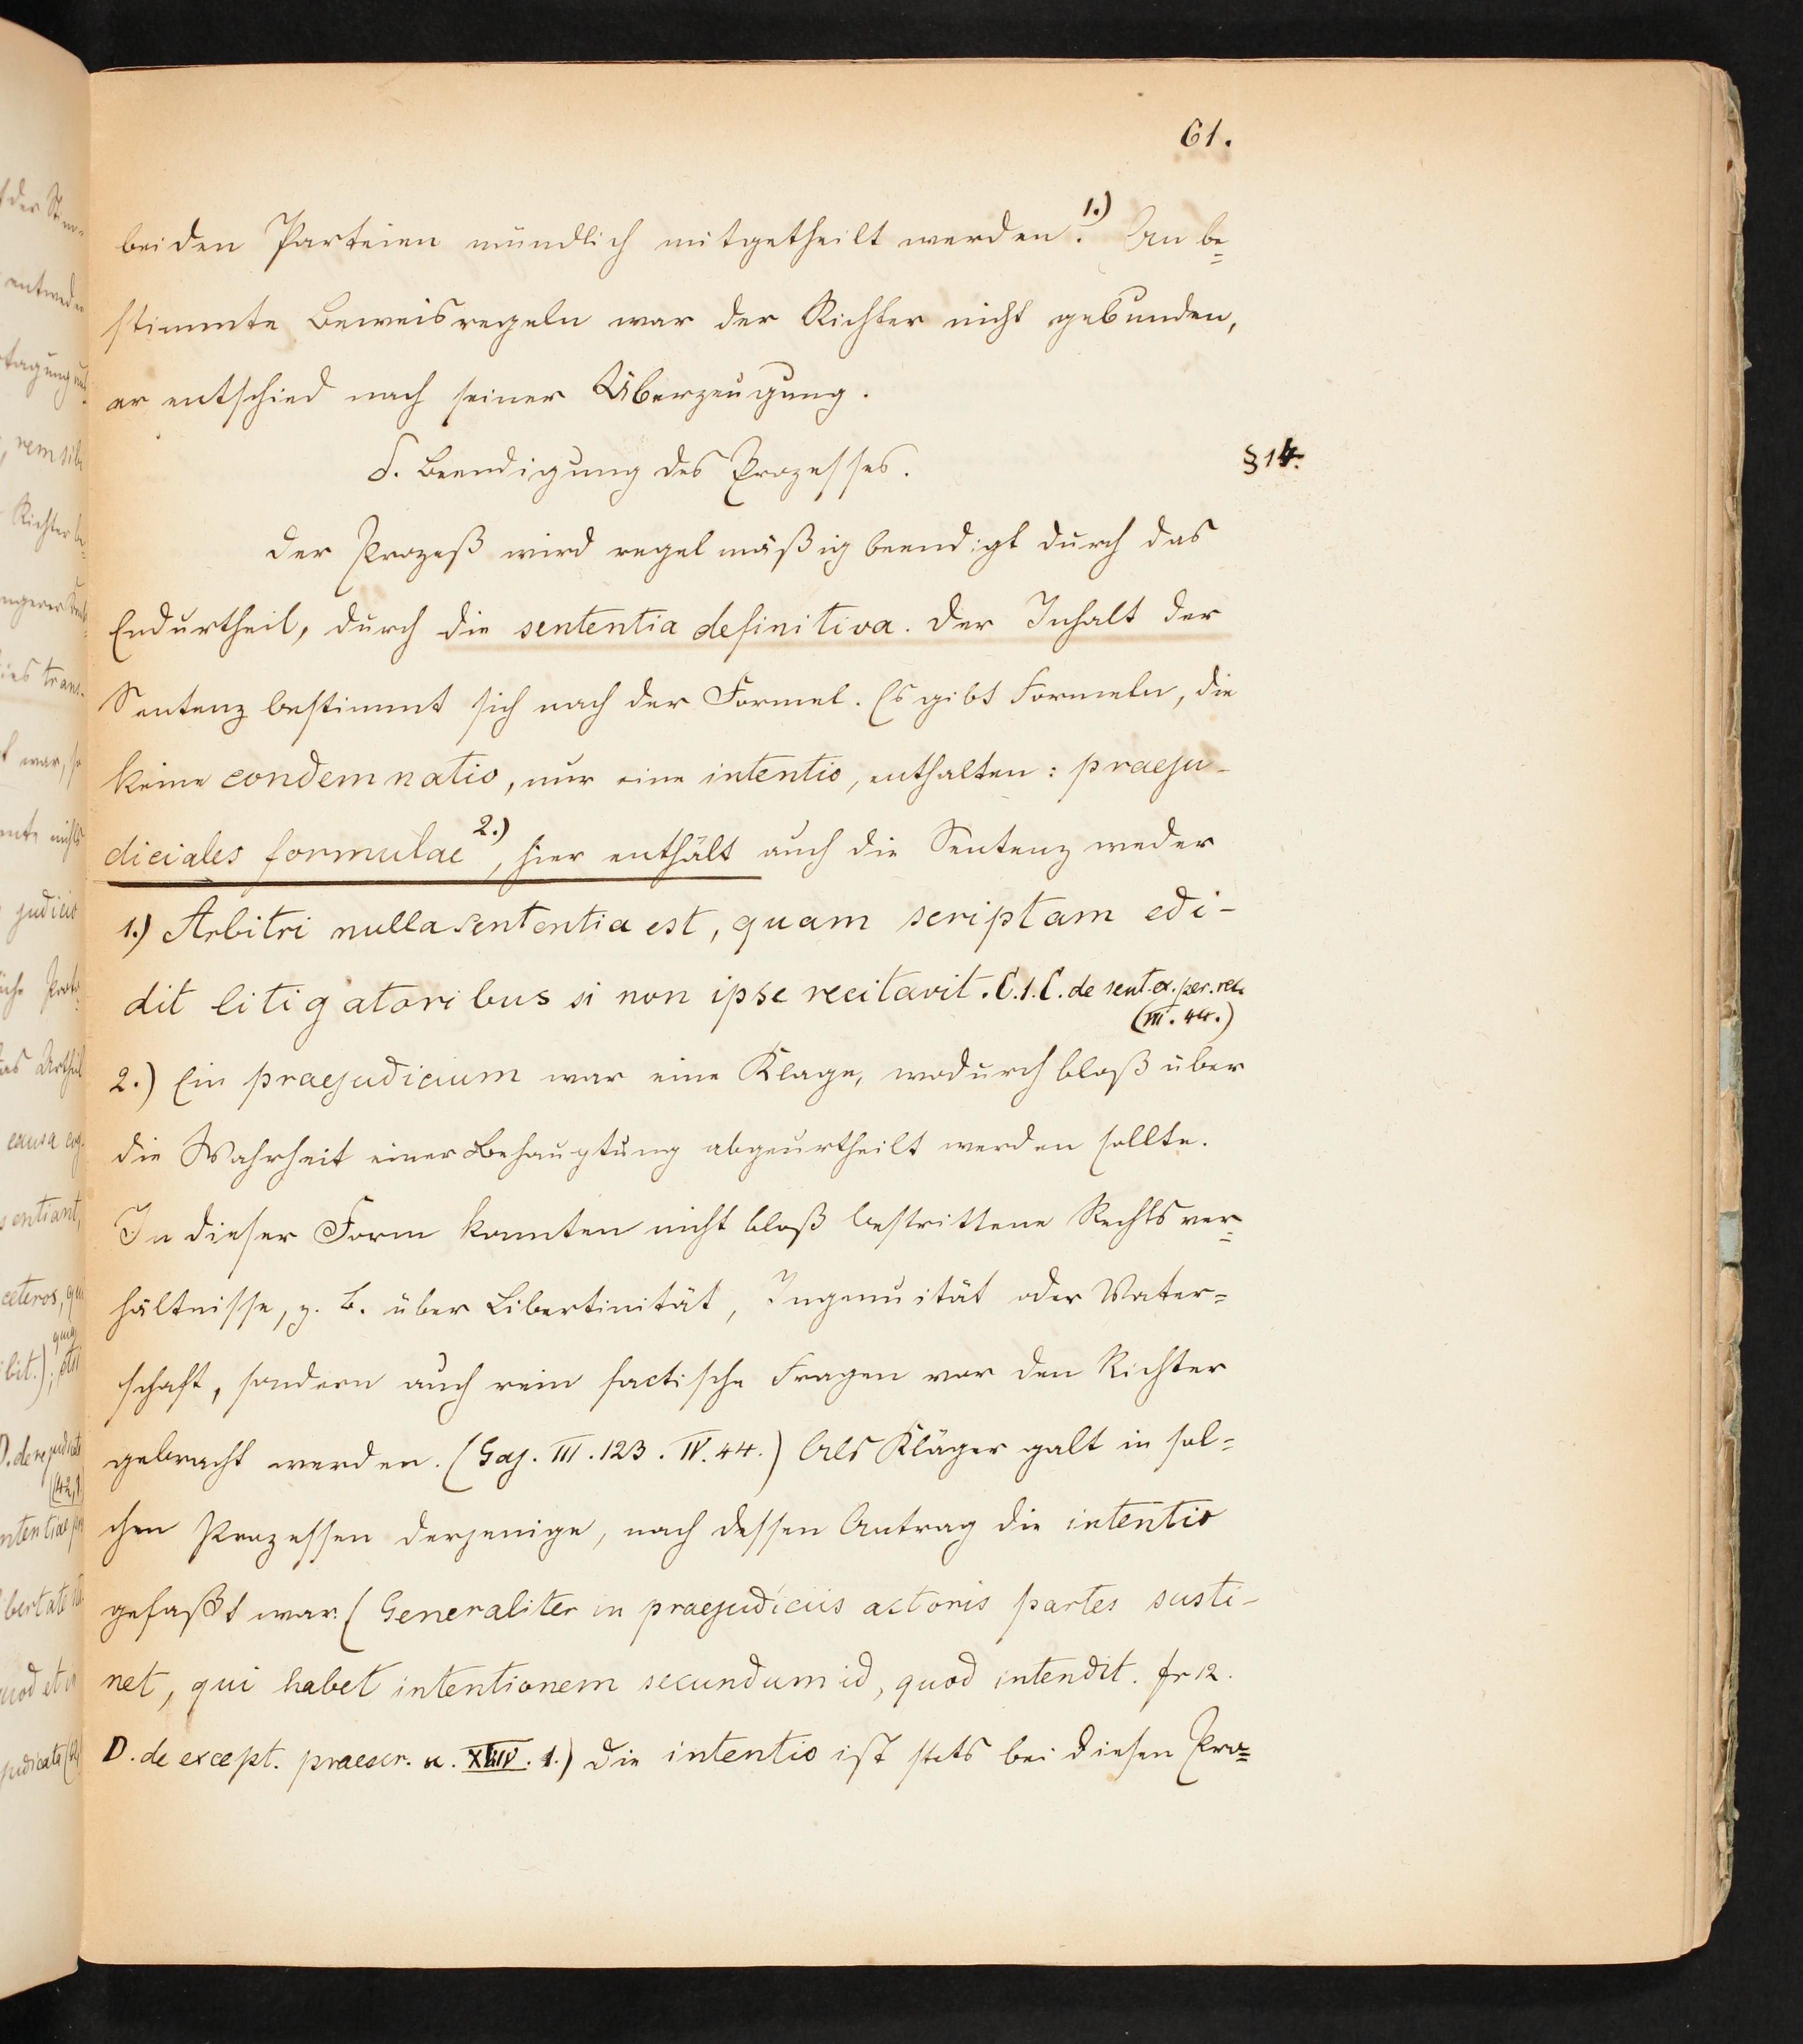 61.
beiden Parteien mündlich mitgetheilt werden.1.) An be=
stimmte Beweisregeln war der Richter nicht gebunden,
er entschied nach seiner Überzeugung.
δ. Beendigung des Prozesses.
§14.
Der Prozeß wird regelmäßig beendigt durch das
Endurtheil, durch die sententia definitiva. Der Inhalt der
Sentenz bestimmt sich nach der Formel. Es gibt Formeln, die
keine condemnatio, nur eine intentio, enthalten: praeju-
diciales formulae2.), hier enthält auch die Sentenz weder
1.) Arbitri nulla sententia est, quam scriptam edi-
dit litigatoribus si non ipse recitavit. C.1.C. de sent. ex. per. rec.
(III. 44.)
2.) Ein praejudicium war eine Klage, wodurch bloß über
die Wahrheit einer Behauptung abgeurtheilt werden sollte.
In dieser Form konnten nicht bloß bestrittene Rechtsver=
hältnisse, z. B. über Libertinität, Ingenuität oder Vater=
schaft, sondern auch rein factische Fragen vor den Richter
gebracht werden. (Gaj. III. 123. IV. 44.) Als Kläger galt in sol=
chen Prozessen derjenige, nach dessen Antrag die intentio
gefaßt war. (Generaliter in praejudiciis actoris partes susti-
net, qui habet intentionem secundum id, quod intendit. fr 12.
D. de except. praescr. XLIV. 1.) Die intentio ist stets bei diesen Pro=